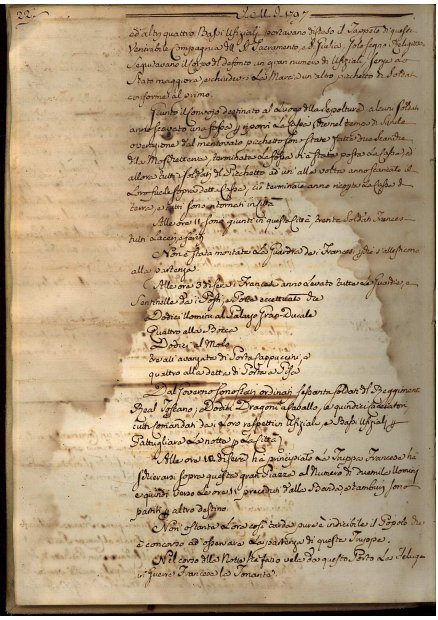 22.
1797
ed altri quattro Bassi Ufiziali portavano disteso il Tappeto di questa
Venerabile Compagnia del SS. Sacramento e S. Giulia, solo segno Religioso
seguitavano il Corpo del Defonto un gran numero di Ufiziali, senza lo
Stato maggiore, e chiudeva la Marcia un altro picchetto di Soldati
conforme al primo.
Giunto il convojo destinato al Luogo della Sepoltura, alcuni Soldati
anno scavato una fossa p riporvi la Cassa, e nel tempo di simile
operazione dal mentovato picchetto sono state fatte due scariche
di Moschetteria, terminata la fossa vi è stata posta la Cassa, ed
allora tutti i Soldati del Picchetto ad un' alla volta anno scaricato il
loro fucile sopra detta Cassa, ciò terminato anno ricoperta la Cassa di
terra, e tutti sono tornati in Città
Alle ore 11 sono giunti in questa Città trenta Soldati Francesi
tutti
Non è stata montata la Guardia da i Francesi,
alla partenza
Alle ore 3 di sera i Francesi anno levato tutte le Guardie, e
Sentinelle da i Posti, e Porte eccettuato che
Dodici Uomini al Palazzo Gran-Ducale
Quattro alla Bocca
Dodici al Molo
tre all'avanzata di Porta Cappuccini, e
quattro alla detta di Porta a Pisa
Dal Governo sono stati ordinati sessanta Soldati del Reggimento
Real Toscano, Dodici Dragoni a Cavallo, e quindici Cacciatori
tutti comandati da i Loro respettivi Ufiziali, e Bassi Ufiziali p
Pattugliare la notte p la Città
Alle ore 10 di sera ha principiato la Truppa Francese ha
schierarsi sopra questa gran Piazza al Numero di duemila Uomini
e quindi verso le ore 11 preceduti dalla Banda, e tamburi sono
partiti p altro destino.
Non ostante l'ora così tarda pure è indicibile il Popolo che
è concorso ad osservare la partenza di queste Truppe.
Nel corso della Notte ha fatto vela da questo Porto la Feluca
in guerra Francese La Tonante.